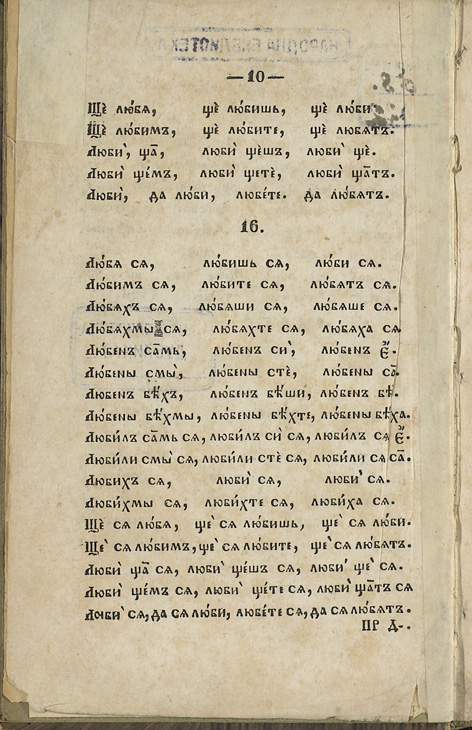 —10—
Щѐ лю́бѧ, щѐ лю́бишь, щѐ лю́би
Щѐ лю́бимъ, щѐ лю́бите, щѐ лю́бѧтъ.
Люби̏, ща̑, люби̏ ще́шъ, люби̏ ще̏.
Люби̏ ще́мъ, люби̏ щетѐ, люби̏ ща̑тъ.
Люби̏, да лю́би, любе́те. да лю́бѧтъ.
16.
Лю́бѧ сѧ, лю́бишь сѧ, лю́би сѧ.
Лю́бимъ сѧ, лю́бите сѧ, лю́бѧтъ сѧ.
Лю́бѧхъ сѧ, лю́бѧши сѧ, лю́бѧше сѧ.
Лю́бѧхмы сѧ, лю́бѧхте сѧ, лю́бѧха сѧ
Лю́бенъ са̑мь, лю́бенъ си̏, лю́бенъ є҆̑.
Лю́бены смы̏, лю́бены стѐ, лю́бены са̑.
Лю́бенъ бѣ́хъ, лю́бенъ бѣ́ши, лю́бенъ бѣ̏.
Лю́бены бѣ́хмы, лю́бены бѣ́хте, лю́бены бѣ́ха.
Люби́лъ са̑мь сѧ, люби́лъ си̏ сѧ, люби́лъ сѧ є҆̑.
Люби́ли смы̏ сѧ, люби́ли стѐ сѧ, люби́ли сѧ са̑.
Люби́хъ сѧ, люби̏ сѧ, люби̏ сѧ.
Люби́хмы сѧ, люби́хте сѧ, люби́ха сѧ.
Щѐ сѧ лю́бѧ, ще̏ сѧ лю́бишь, ще̏ сѧ лю́би.
Ще̏ сѧ лю́бимъ, ще̏ сѧ лю́бите, ще̏ сѧ лю́бѧтъ.
Люби̏ ща̑ сѧ, люби̏ ще́шъ сѧ, люби̏ ще̏ сѧ.
Люби̏ ще́мъ сѧ, люби̏ ще́те сѧ, люби̏ ща̑тъ сѧ
Люби̏ сѧ, да сѧ лю́би, любе́те сѧ, да сѧ лю́бѧтъ.
ПР Д-.